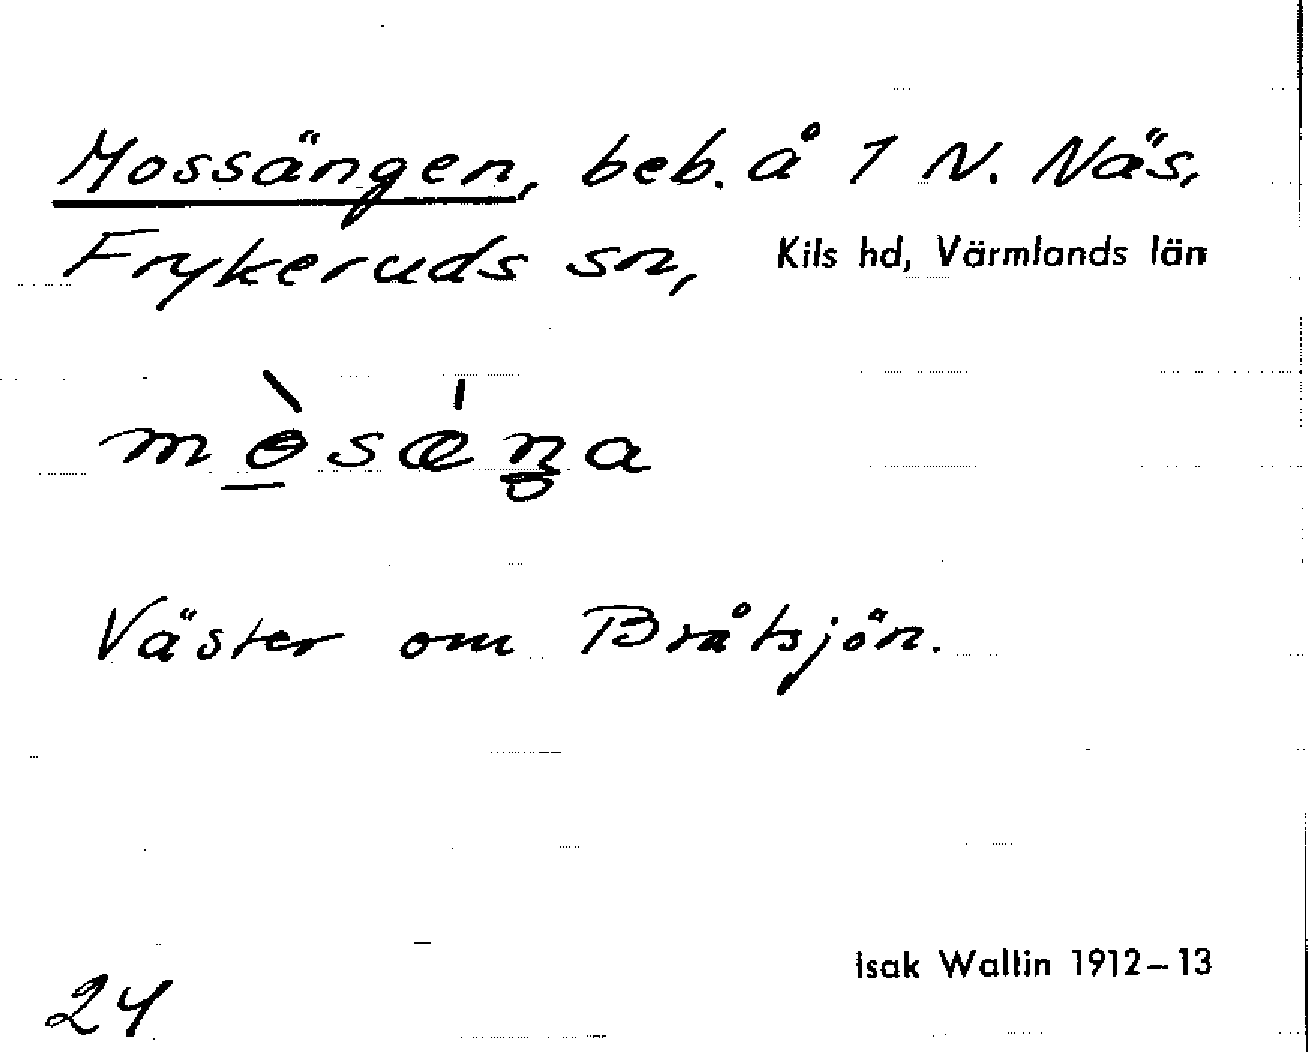 Mossängen, beb. å 1 N. Näs,
Frykeruds sn, Kils hd, Värmlands län
mɵ̀sǽŋa
Väster om Bråtsjön.
Isak Wallin 1912–13
24